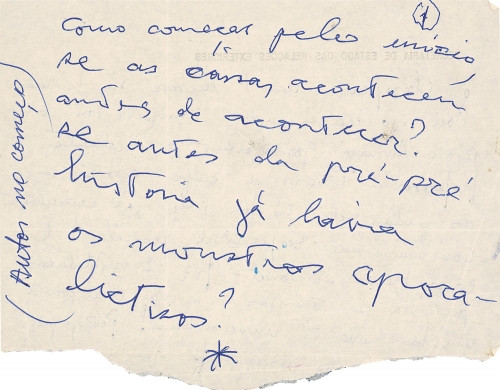 1
Como começar pelo início,
se as coisas acontecem
antes de acontecer?
se antes da pré-pré
história já havia
os monstros apoca-
lieticos?
*
(Autor no começo)